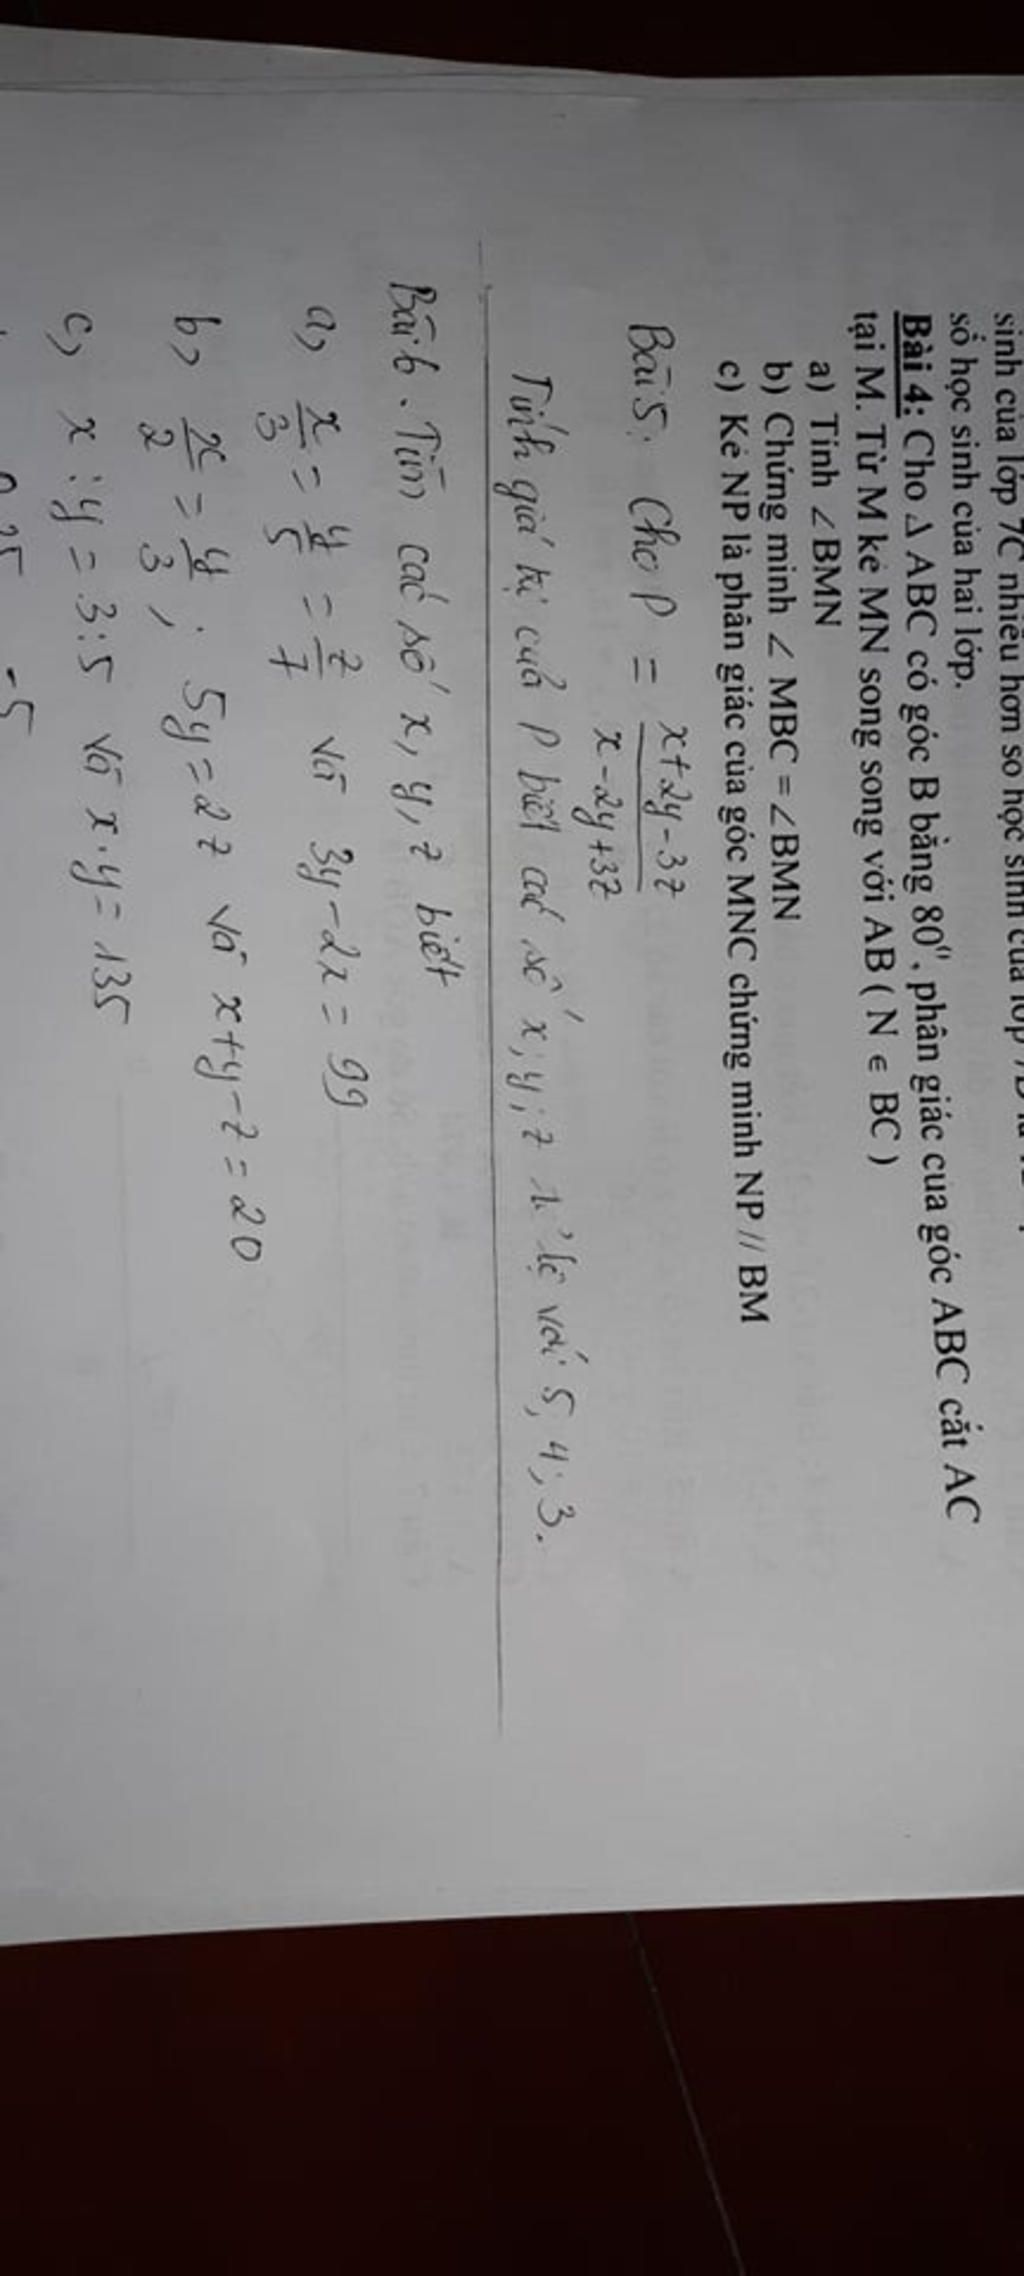 sinh của lớp 7C nhiều hơn số học sinh của lớp
số học sinh của hai lớp.
Bài 4: Cho Δ ABC có góc B bằng 80⁰, phân giác của góc ABC cắt AC
tại M. Từ M kẻ MN song song với AB ( N ∈ BC )
a) Tính ∠BMN
b) Chứng minh ∠ MBC = ∠BMN
c) Kẻ NP là phân giác của góc MNC chứng minh NP // BM
Bài 5: Cho P = \frac{x+2y-3z}{x-2y+3z}
Tính giá trị của P biết các số x; y; z tỉ lệ với 5, 4; 3.
Bài 6. Tìm các số x, y, z biết
a, \frac{x}{3} = \frac{y}{5} = \frac{z}{7} và 3y - 2x = 99
b, \frac{x}{2} = \frac{y}{3} ; 5y = 2z và x+y-z = 20
c, x : y = 3:5 và x.y = 135